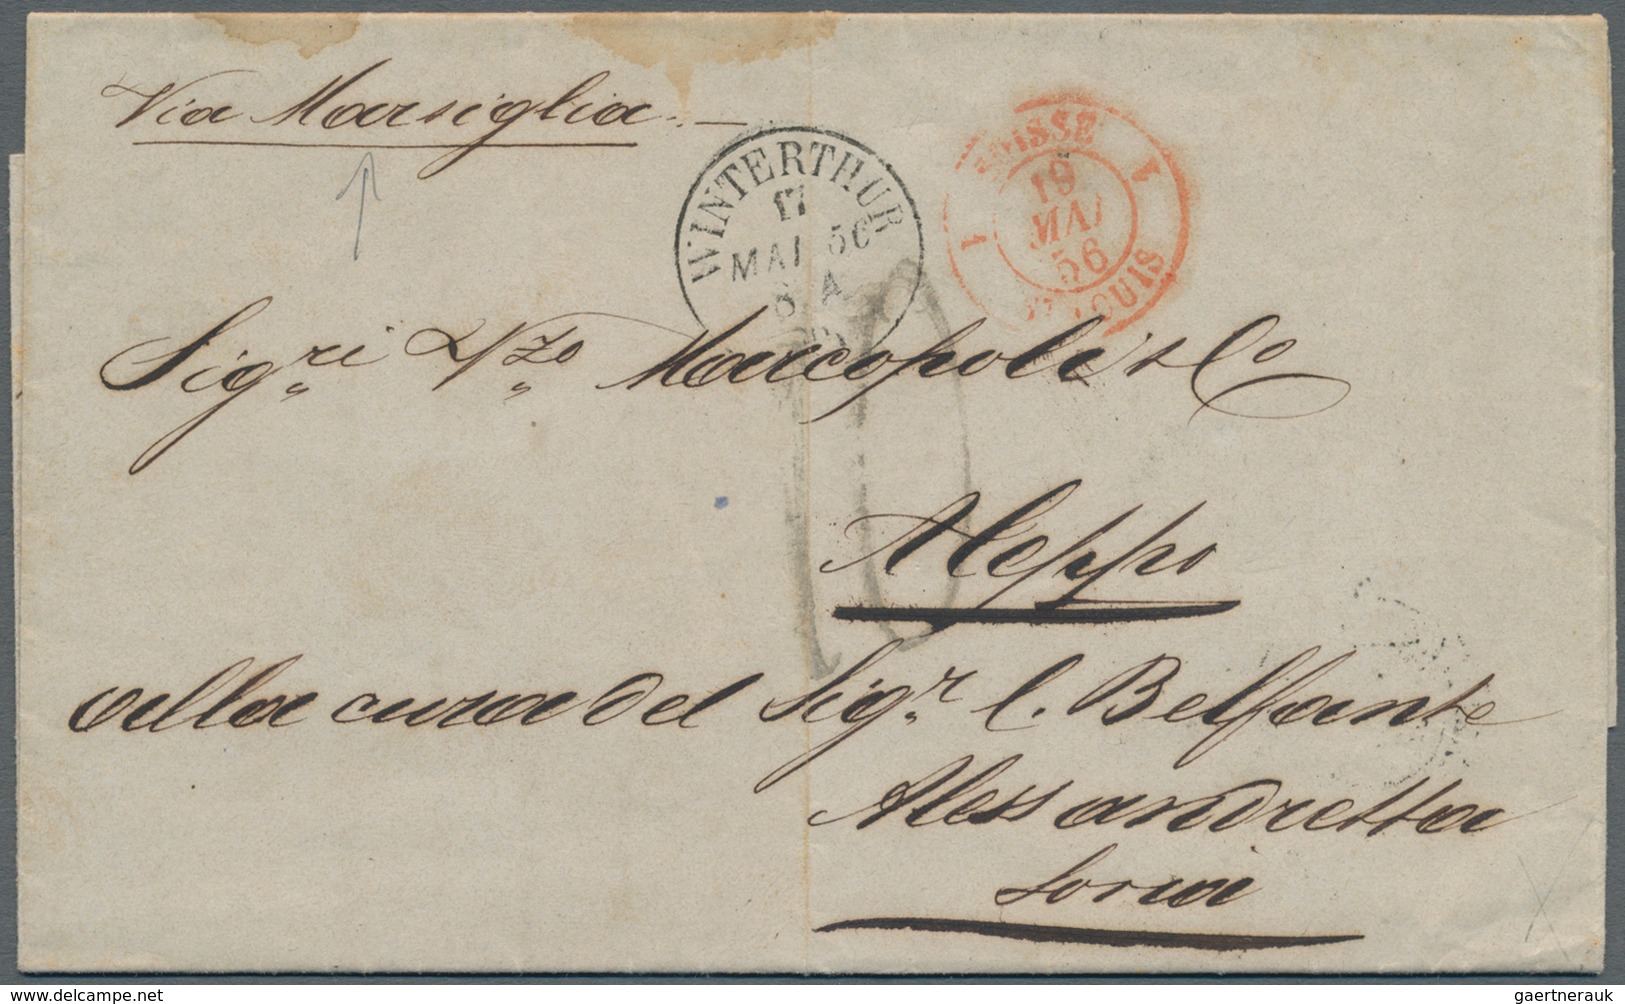 Via Marsiglia
WINTERTHUR
17
MAI 56
8 A
1 SUISSE 1
19
MAI
56
ST LOUIS
10
Sig.ri Vzo Marcopoli & Co
Aleppo
alla cura del Sigr. C. Belfante
Alessandretta
Soria
gaertnerauk @ delcampe.net